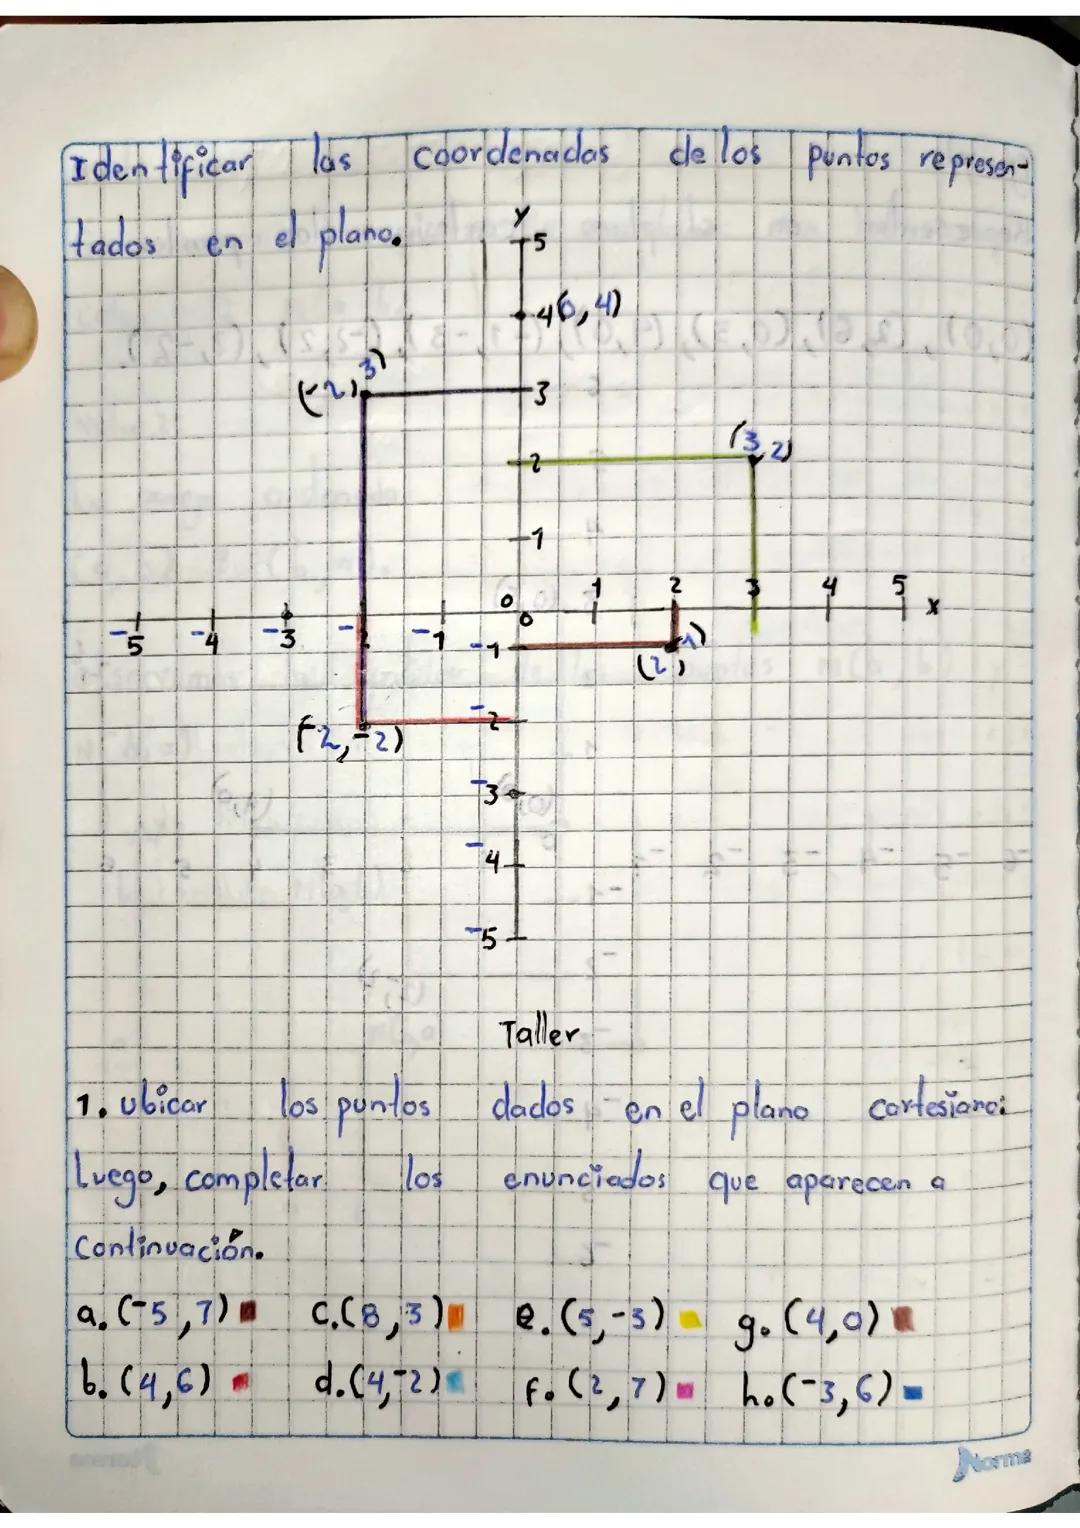 Identificar las coordenadas de los puntos represen-
tados en el plano.
Y
5
4(0,4)
(-2,3)
3
(3,2)
2
1
0 1 2 3 4 5 x
-5 -4 -3 -2 -1 0
-1
(2,1)
-2
(-2,-2)
-3
-4
-5
Taller
1. ubicar los puntos dados en el plano cartesiano:
Luego, completar los enunciados que aparecen a
continuación.
a. (-5,7) c. (8,3) e. (5,-3) g. (4,0)
b. (4,6) d. (4,-2) f. (2,7) h. (-3,6)
Norma